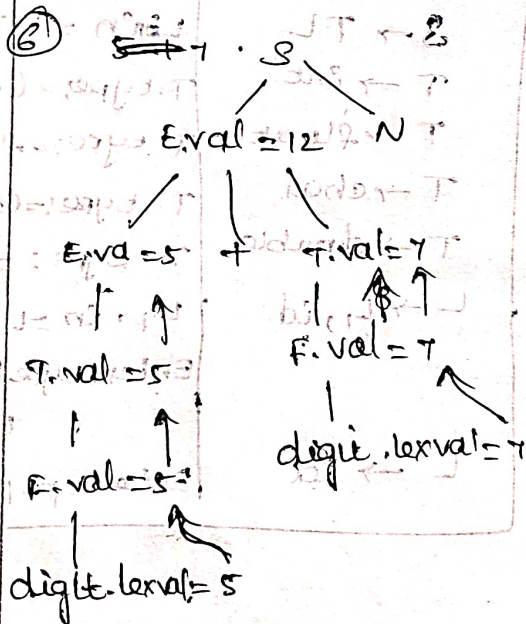 6)
5+7 . S
E.val = 12 N
E.va = 5 + T.val = 7
T.val = 5 F.val = 7
F.val = 5 digit.lexval = 7
digit.lexval = 5